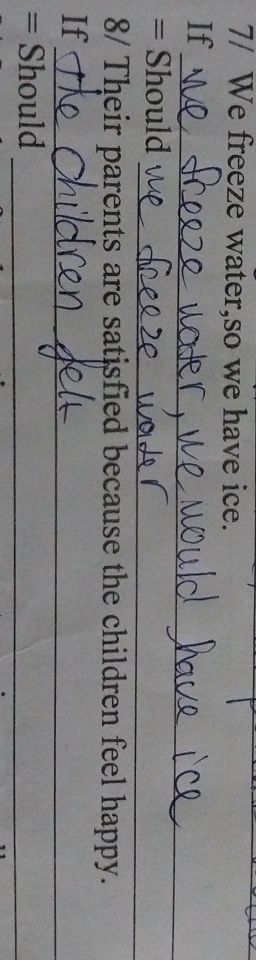 7/ We freeze water,so we have ice.
If we freeze water, we would have ice
= Should we freeze water
8/ Their parents are satisfied because the children feel happy.
If the children felt
= Should